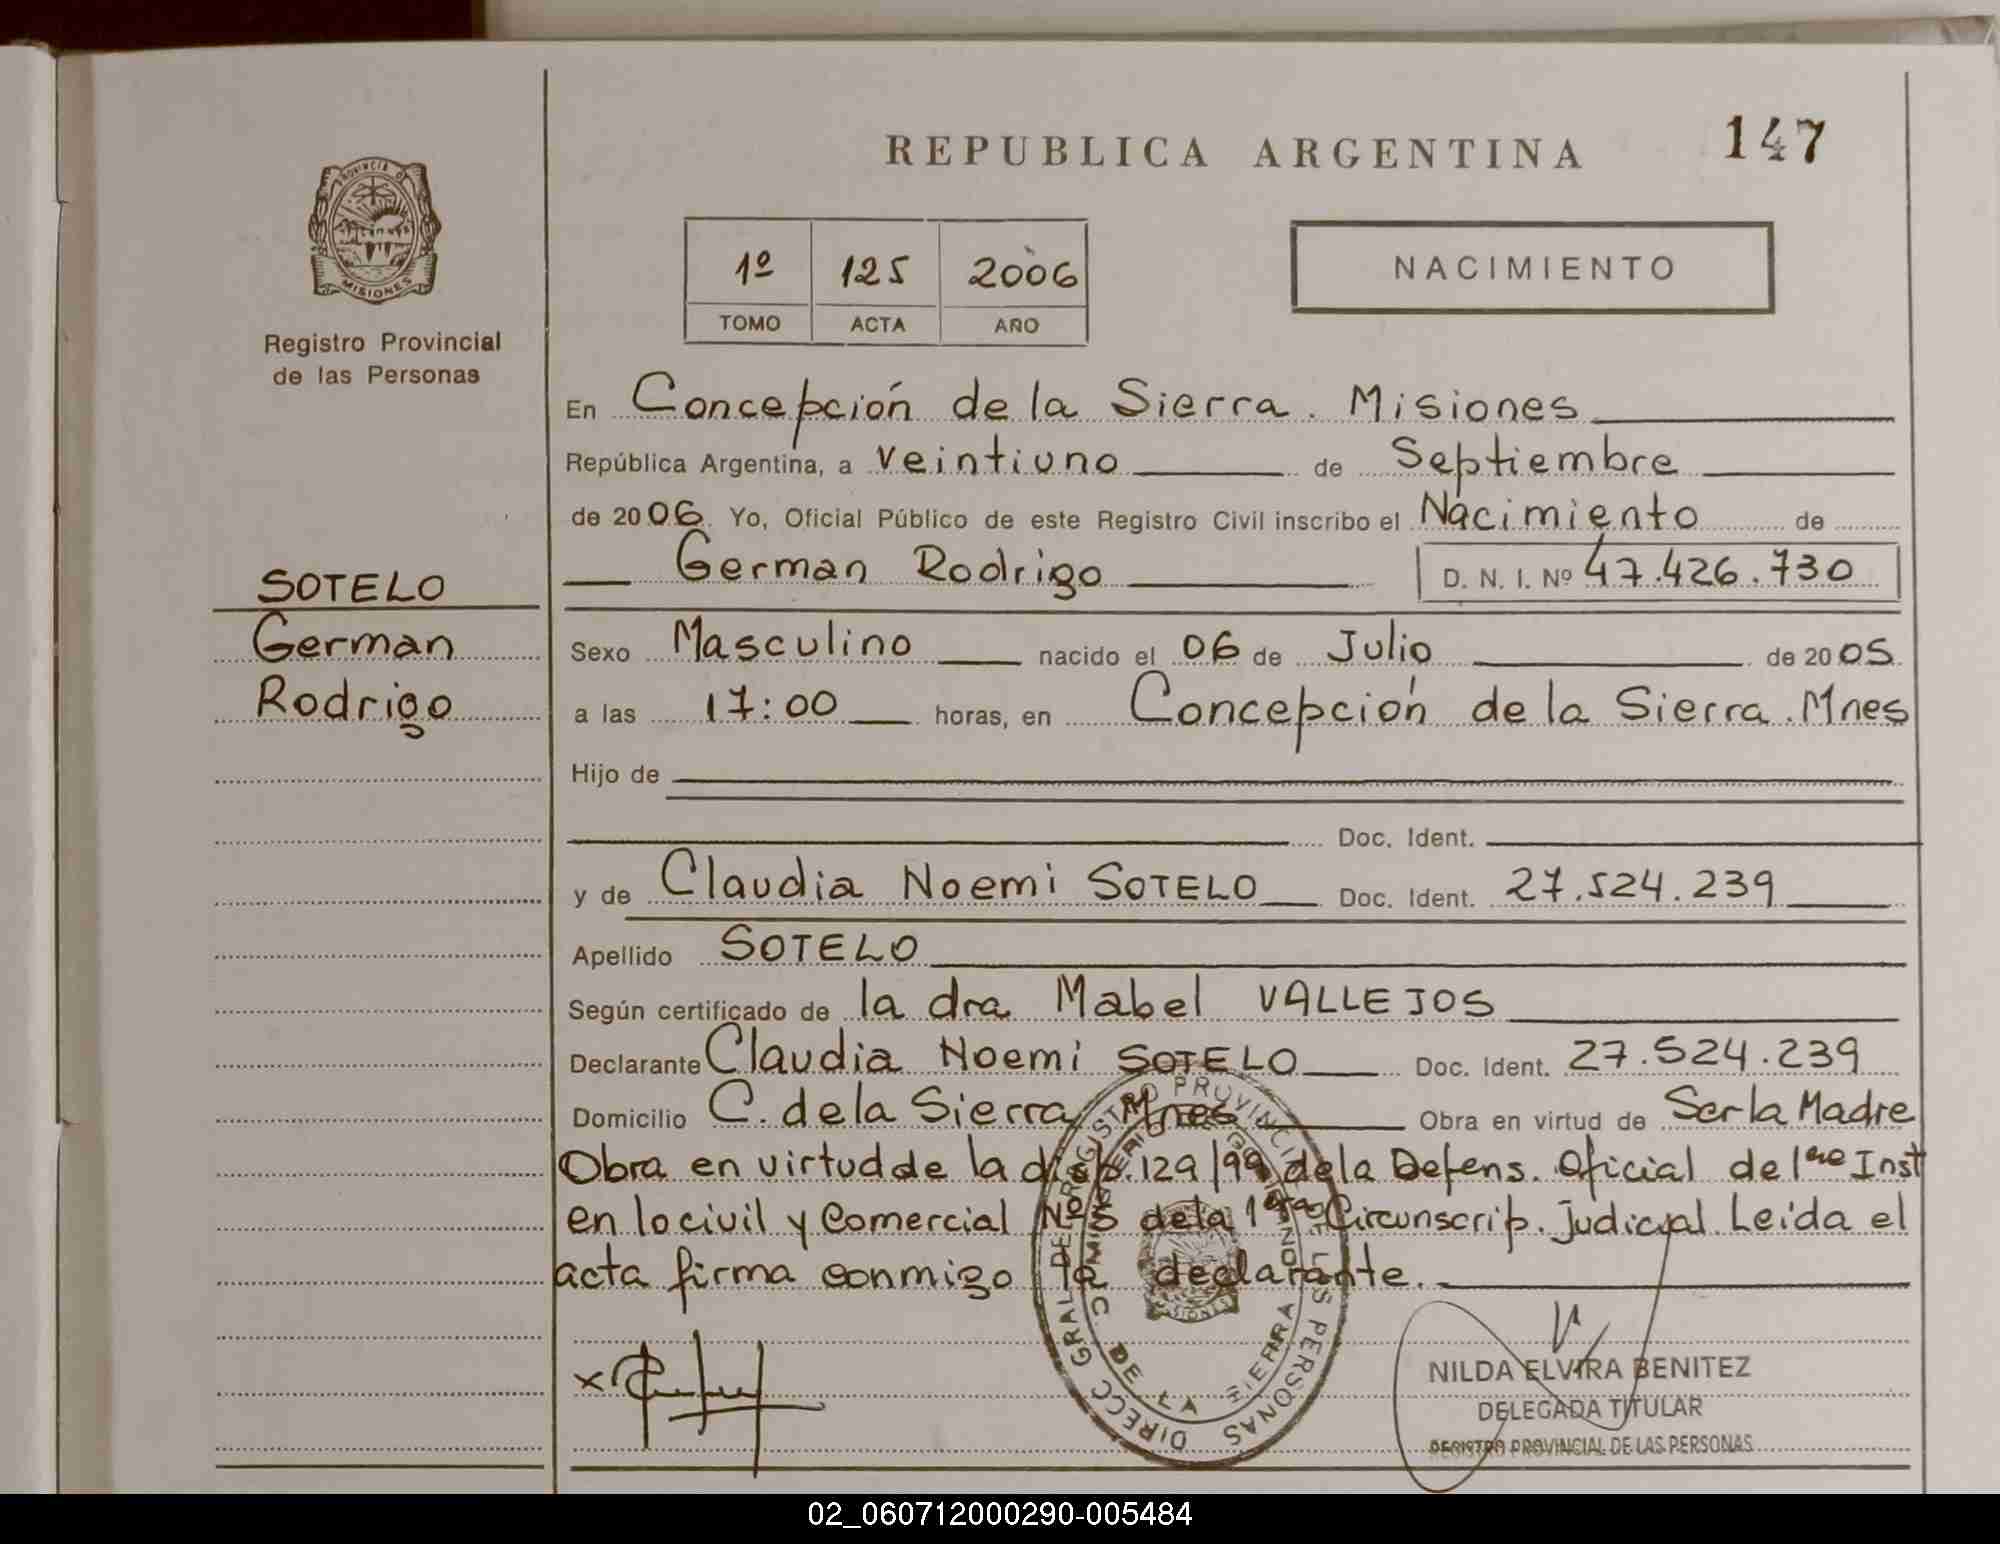 REPUBLICA ARGENTINA
147
PROVINCIA D
MISIONES
Registro Provincial
de las Personas
1º 125 2006
TOMO ACTA AÑO
NACIMIENTO
En Concepción de la Sierra. Misiones
República Argentina, a veintiuno de Septiembre
de 2006. Yo, Oficial Público de este Registro Civil inscribo el Nacimiento de
German Rodrigo D. N. I. Nº 47.426.730
SOTELO
German
Rodrigo
Sexo Masculino nacido el 06 de Julio de 2005.
a las 17:00 horas, en Concepción de la Sierra. Mnes
Hijo de
Doc. Ident.
y de Claudia Noemi SOTELO Doc. Ident. 27.524.239
Apellido SOTELO
Según certificado de la dra Mabel VALLEJOS
Declarante Claudia Noemi SOTELO Doc. Ident. 27.524.239
Domicilio C. de la Sierra Mnes Obra en virtud de Ser la Madre
Obra en virtud de la disp. 129/99 de la Defens. Oficial de 1ra Inst
en lo civil y Comercial Nº5 de la 1ra Circunscrip. Judicial. Leída el
acta firma conmigo la declarante.
DIRECC GRAL DE REGISTRO PROVINCIAL DE LAS PERSONAS
MINISTERIO DE GOBIERNO
C DE LA SIERRA
MISIONES
NILDA ELVIRA BENITEZ
DELEGADA TITULAR
REGISTRO PROVINCIAL DE LAS PERSONAS
02_060712000290-005484